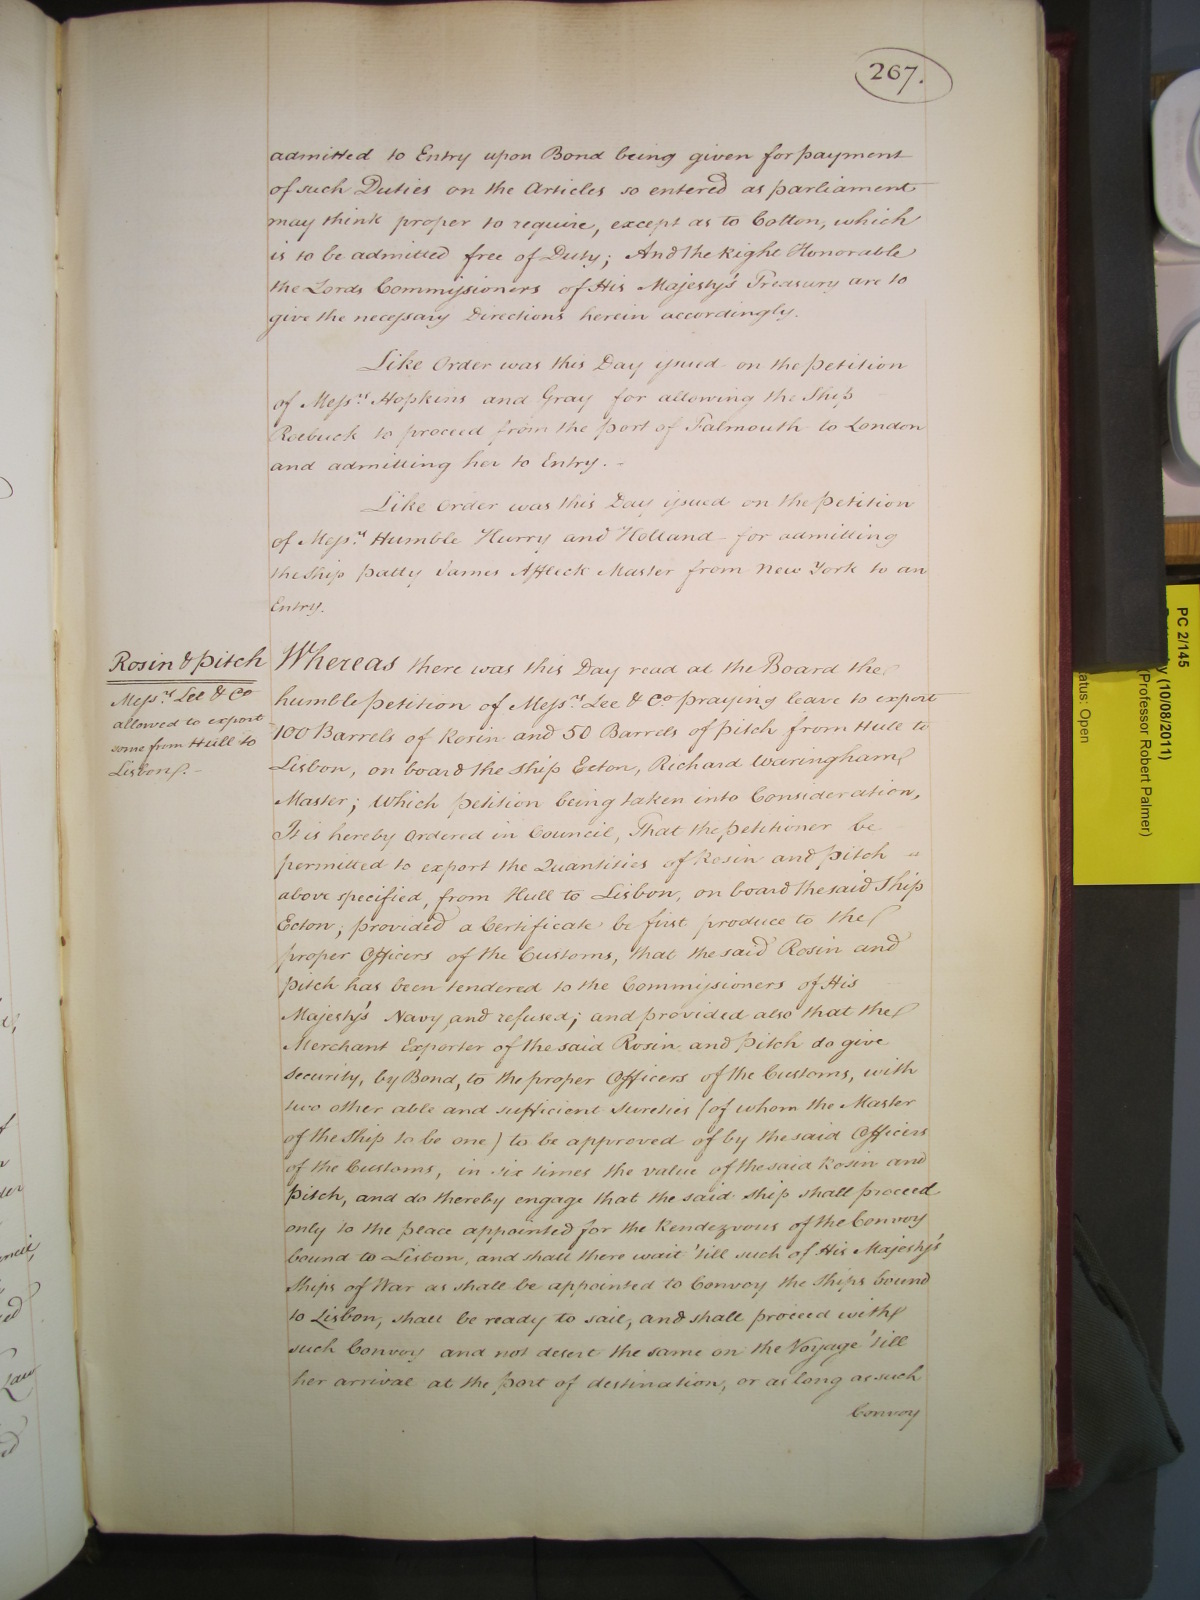 267.
admitted to Entry upon Bond being given for payment
of such Duties on the Articles so entered as parliament
may think proper to require, except as to Cotton, which
is to be admitted free of Duty; And the Right Honorable
the Lords Commissioners of His Majesty's Treasury are to
give the necessary Directions herein accordingly.
Like Order was this Day issued on the petition
of Messrs. Hopkins and Gray for allowing the Ship
Roebuck to proceed from the port of Falmouth to London
and admitting her to Entry. -
Like Order was this Day issued on the petition
of Messrs. Humble Hurry and Holland for admitting
the Ship Patty James Affleck Master from New York to an
Entry.
Rosin & Pitch
Messrs. Lee & Co
allowed to export
some from Hull to
Lisbon. -
Whereas there was this Day read at the Board the
humble petition of Messrs. Lee & Co praying leave to export
100 Barrels of Rosin and 50 Barrels of pitch from Hull to
Lisbon, on board the Ship Ecton, Richard Waringham
Master; Which petition being taken into Consideration,
It is hereby Ordered in Council, That the petitioner be
permitted to export the Quantities of Rosin and pitch
above specified, from Hull to Lisbon, on board the said Ship
Ecton; provided a Certificate be first produce to the
proper Officers of the Customs, that the said Rosin and
pitch has been tendered to the Commissioners of His
Majesty's Navy and refused; and provided also that the
Merchant Exporter of the said Rosin and pitch do give
security, by Bond, to the proper Officers of the Customs, with
two other able and sufficient Sureties (of whom the Master
of the Ship to be one) to be approved of by the said Officers
of the Customs, in six times the value of the said Rosin and
pitch, and do thereby engage that the said Ship shall proceed
only to the place appointed for the Rendezvous of the Convoy
bound to Lisbon, and shall there wait 'till such of His Majesty's
Ships of War as shall be appointed to Convoy the Ships bound
to Lisbon, shall be ready to sail, and shall proceed with
such Convoy and not desert the same on the Voyage 'till
her arrival at the port of destination, or as long as such
Convoy
PC 2/145
(10/08/2011)
(Professor Robert Palmer)
atus: Open